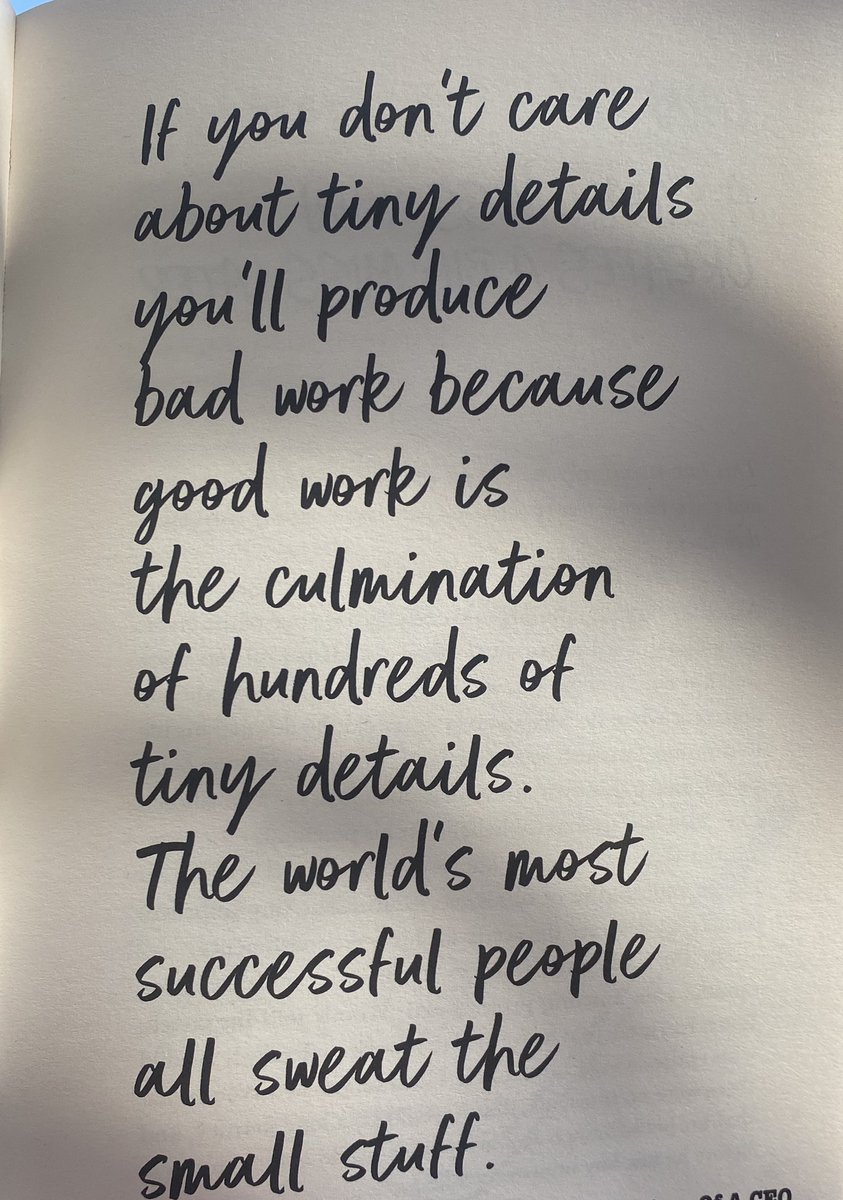 If you don't care
about tiny details
you'll produce
bad work because
good work is
the culmination
of hundreds of
tiny details.
The world's most
successful people
all sweat the
small stuff.
Of A CEO